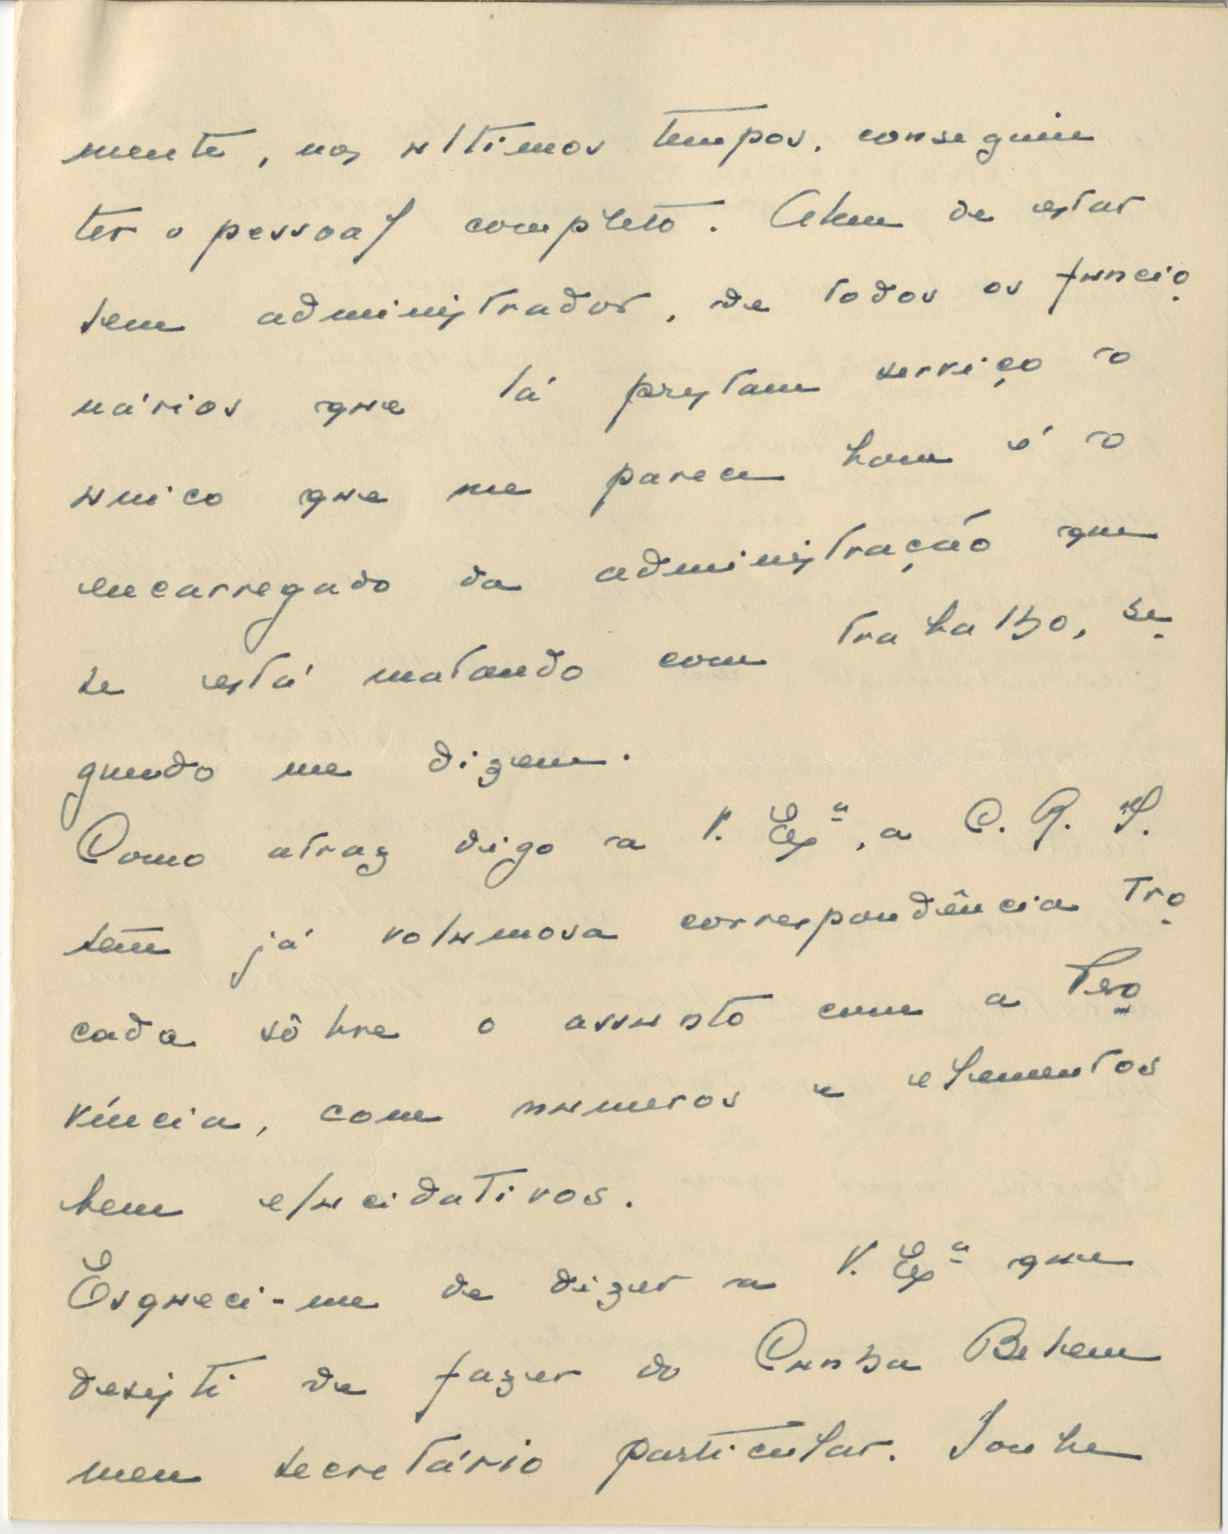 mente, nos ultimos tempos, conseguiu
ter o pessoal completo. Alem de estar
sem administrador, de todos os funcio
nários que lá prestam serviço o
unico que me parece bom é o
encarregado da administração que
se está matando com trabalho, se
gundo me dizem.
Como atraz digo a V. Exª, a C. R. S.
tem já volumosa correspondência tro
cada sôbre o assunto com a Pro
víncia, com numeros e elementos
bem elucidativos.
Esqueci-me de dizer a V. Exª que
desisti de fazer do Cunha Belem
meu secretário particular. Soube